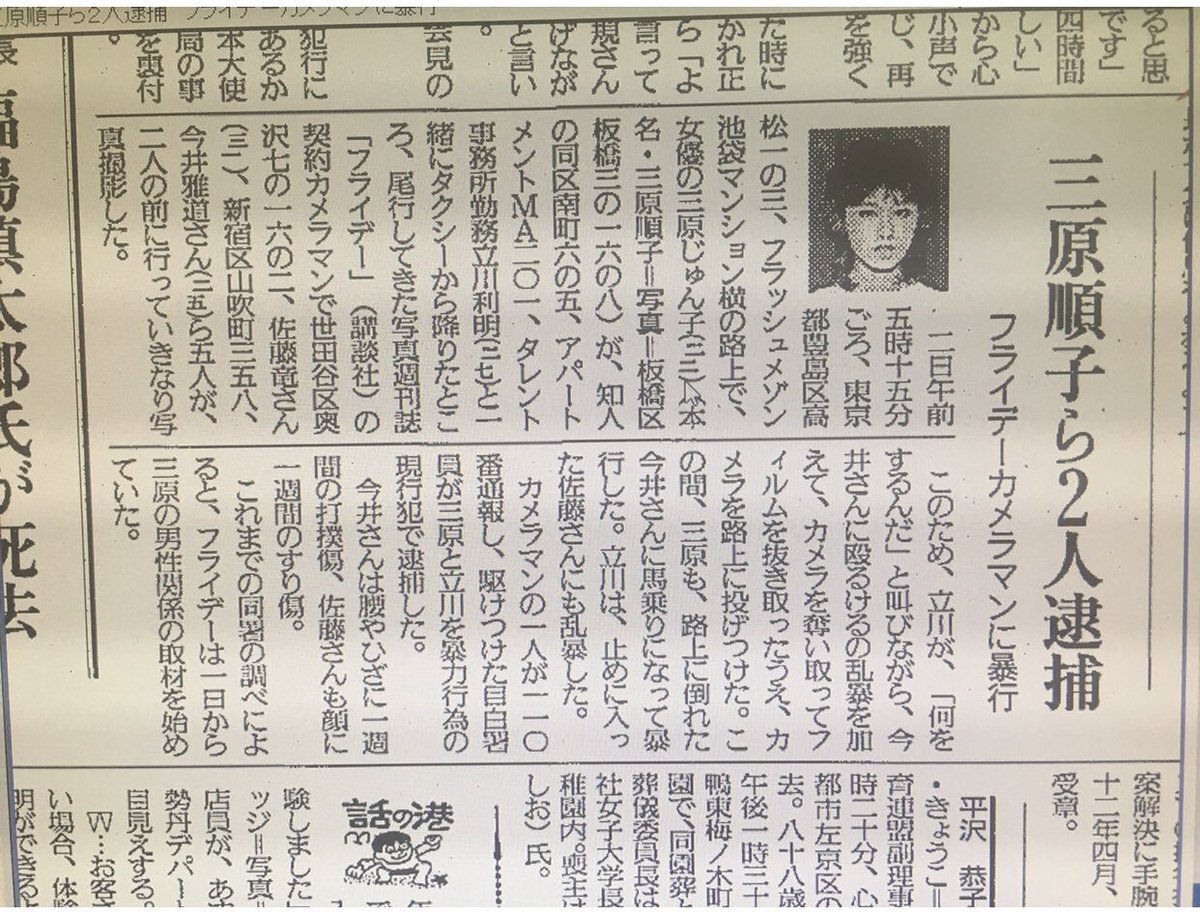 原順子ら2人逮捕 フライデーカメラマンに暴行
ると思
です」
四時間
しい」
から心
小声で
じ、再
を強く
た時に
かれ正
ら「よ
言って
規さん
げなが
と言い
。
会見の
犯行に
あるか
本大使
局の事
。
三原順子ら2人逮捕
フライデーカメラマンに暴行
二日午前
五時十五分
ごろ、東京
都豊島区高
松一の三、フラッシュメゾン
池袋マンション横の路上で、
女優の三原じゅん子
本
名・三原順子＝写真＝板橋区
板橋三の一六の八)が、知人
の同区南町六の五、アパート
メントMA二〇一、タレント
事務所勤務立川利明(二七)と一
緒にタクシーから降りたとこ
ろ、尾行してきた写真週刊誌
「フライデー」(講談社)の
契約カメラマンで世田谷区奥
沢七の一六の二、佐藤竜さん
新宿区山吹町三五八、
今井雅道さん
ら五人が、
二人の前に行っていきなり写
真撮影した。
このため、立川が、「何を
するんだ」と叫びながら、今
井さんに殴るけるの乱暴を加
えて、カメラを奪い取ってフ
ィルムを抜き取ったうえ、カ
メラを路上に投げつけた。こ
の間、三原も、路上に倒れた
今井さんに馬乗りになって暴
行した。立川は、止めに入っ
た佐藤さんにも乱暴した。
カメラマンの一人が一一〇
番通報し、駆けつけた目白署
員が三原と立川を暴力行為の
現行犯で逮捕した。
今井さんは腰やひざに一週
間の打撲傷、佐藤さんも顔に
一週間のすり傷。
これまでの同署の調べによ
ると、フライデーは一日から
三原の男性関係の取材を始め
ていた。
福島慎太郎氏が死去
案解決に手腕
十二年四月、
受章。
平沢 恭子
・きょうこ＝
育連盟副理事
時二十分、心
都市左京区の
去。八十八歳
午後一時三十
鴨東梅ノ木町
園で、同園葬と
葬儀委員長は
社女子大学長
稚園内。喪主は
しお)氏。
話の港
験しました
ッジ＝写真＝
店員が、あ
勢丹デパー
目見えする。
W…お客さ
い場合、体験
明ができるよ